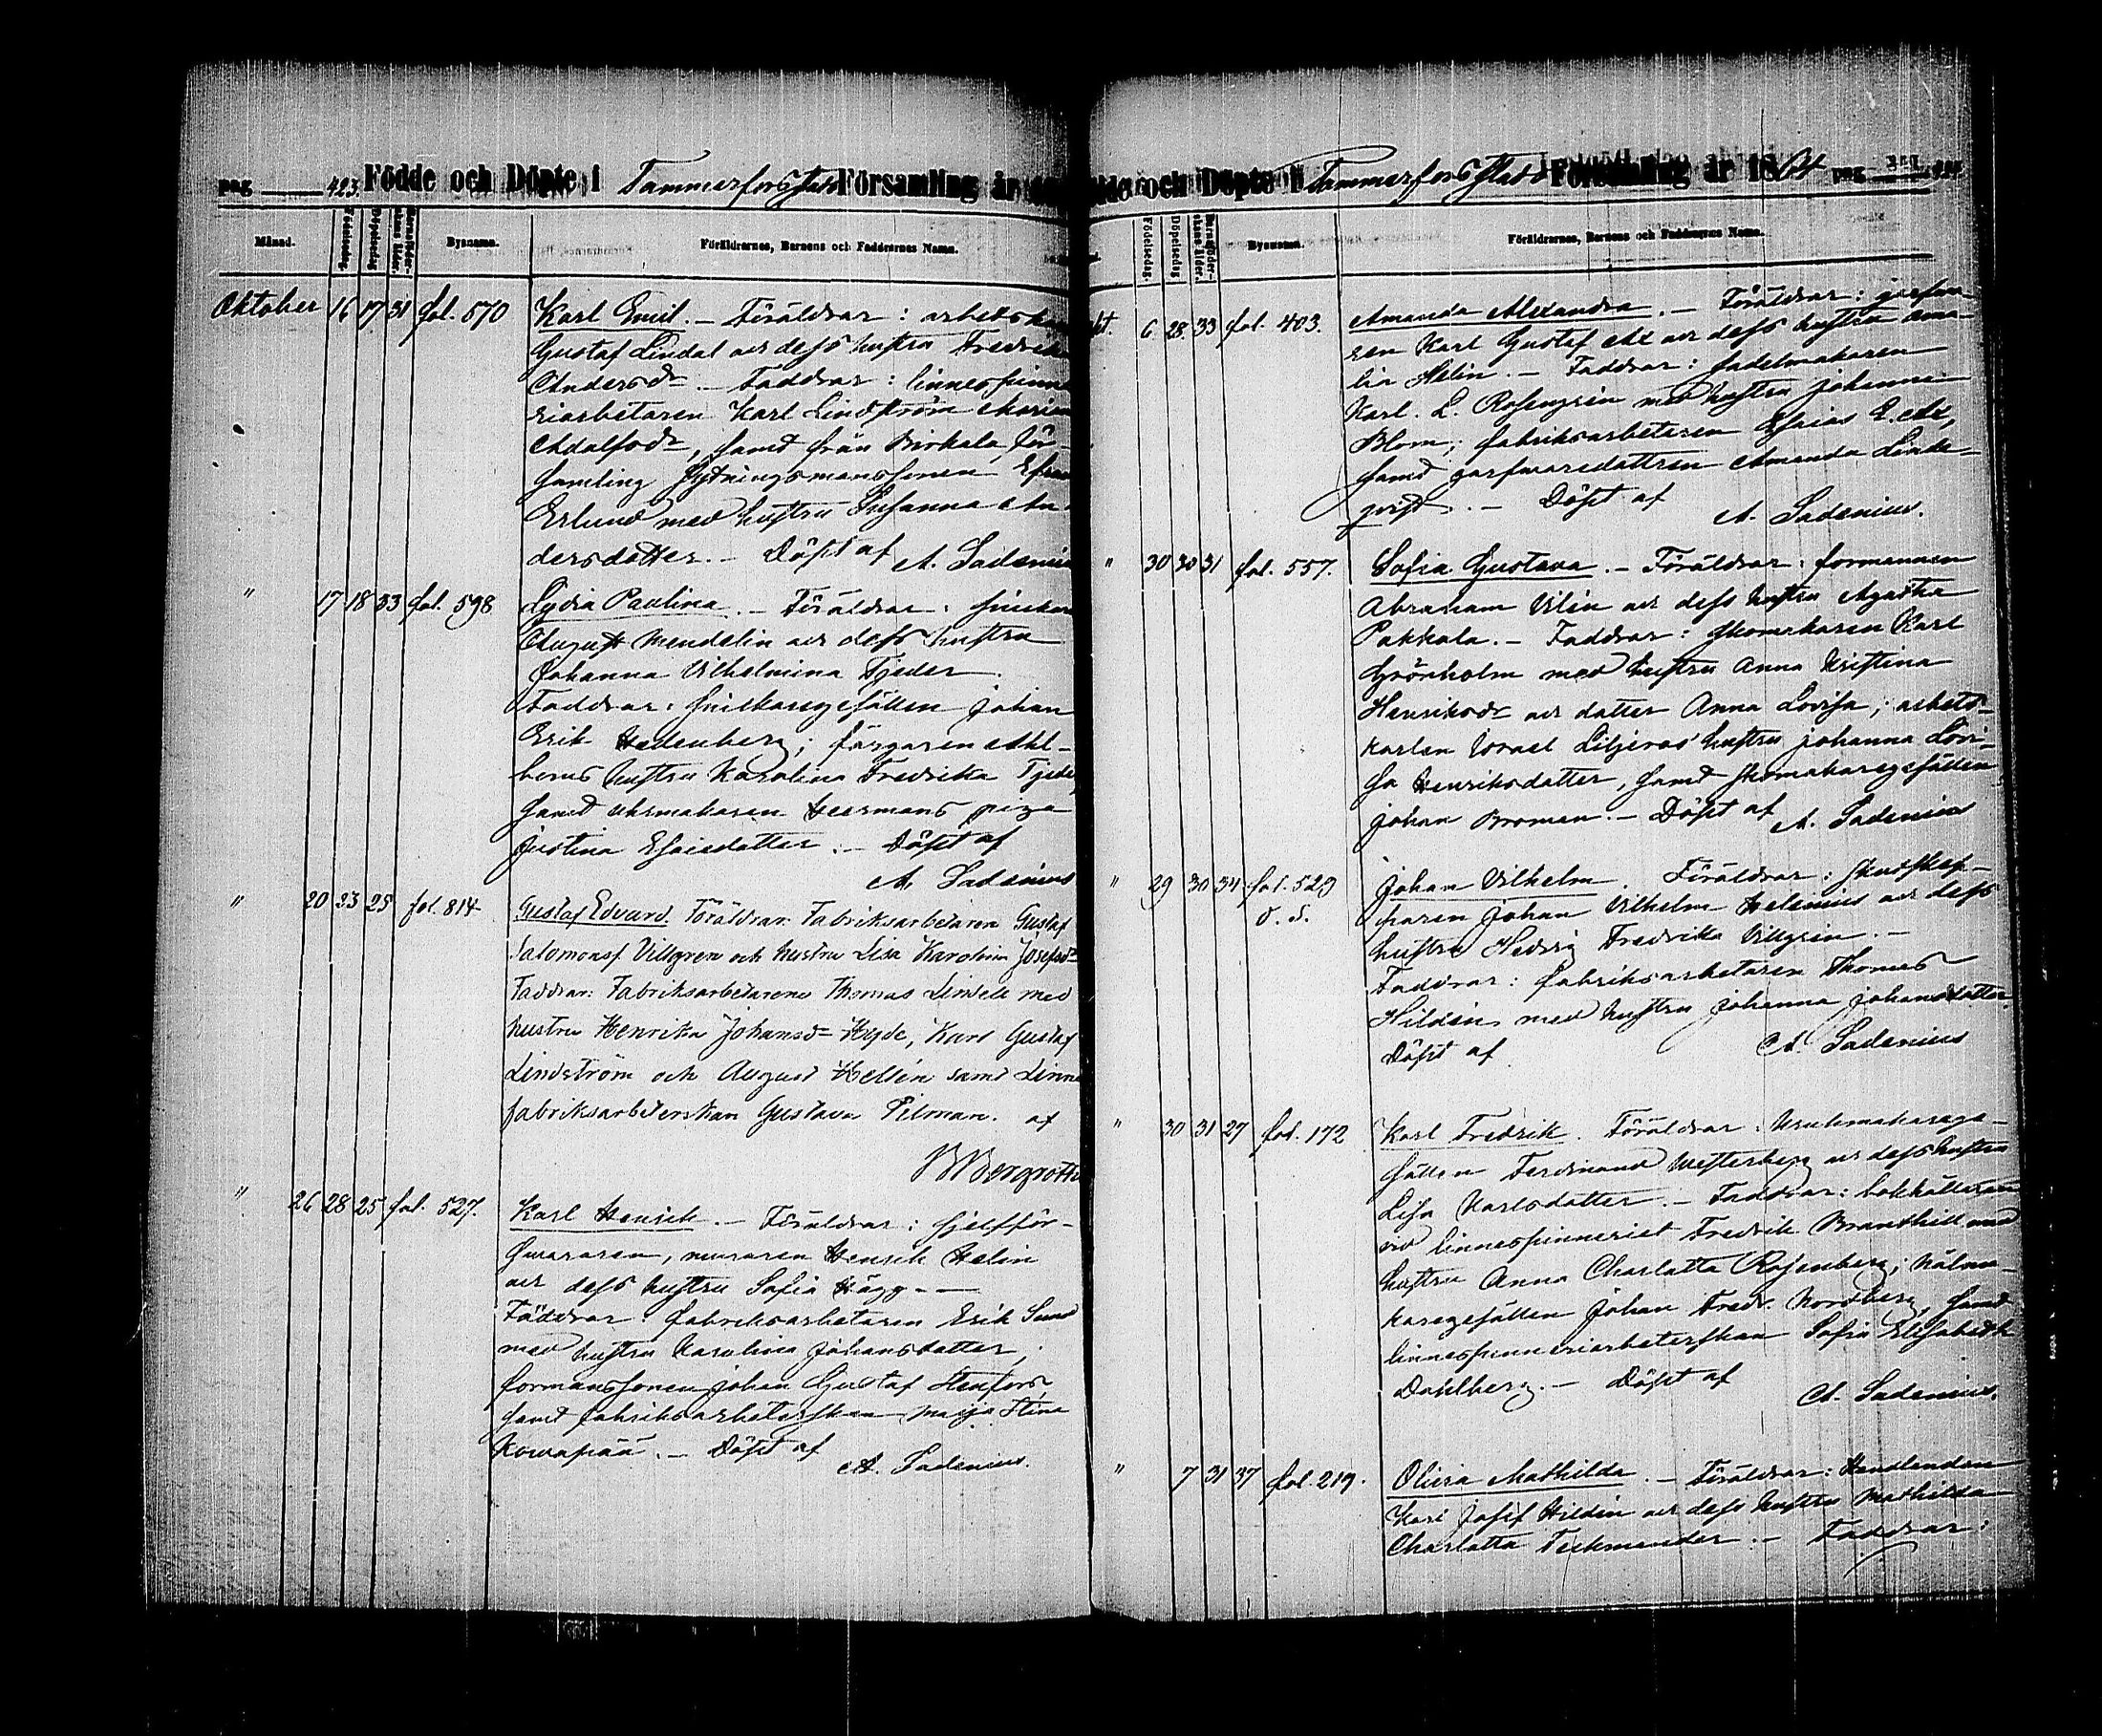 pag 423. Födde och Döpte i Tammerfors stads Församling år
Månad. Födelsedag. Döpelsedag. Barnaföderskans ålder. Bysnamn. Föräldrarnes, Barnens och Faddrarnes Namn.
Oktober 16 17 31 fol. 570 Karl Emil. – Föräldrar: arbetskar
Gustaf Lindal och dess hustru Fredrika
Andersdr. – Faddrar: linnespinne
riarbetaren Karl Lindström Maria
Adolfsdr, samt från Birkala för-
samling Esra
Erlund med hustru Susanna An-
dersdotter. – Döpt af A. Sadenius
" 17 18 33 fol. 598 Lydia Paulina. – Föräldrar: snickaren
August Mendelin och dess hustru
Johanna Vilhelmina Tjeder.
Faddrar: snickaregesällen Johan
Erik Hedenberg; färgaren Ahl-
bergs hustru Karolina Fredrika Tjeder
samt urmakaren Hermans piga
Justina Esaiedotter. – Döpt af
A. Sadenius
" 20 23 25 fol. 814 Gustaf Edvard. Föräldrar: Fabriksarbetaren Gustaf
Salomonsf Villgren och hustru Lisa Karolina Josefsdr
Faddrar: Fabriksarbetarene Thomas Lindell med
hustru Henrika Johansdr Hyde, Karl Gustaf
Lindström och August Hellén samt Linne
fabriksarbeterskan Gustava Pilman. af
B Bergroth
" 26 28 25 fol. 527. Karl Henrik. – Föräldrar: sjelfför-
svararen, muraren Henrik Helin
och dess hustru Sofia Hägg. –
Faddrar: fabriksarbetaren Erik Sund
med hustru Karolina Johansdotter,
formanssonen Johan Gustaf Stenfors,
samt fabriksarbeterskan Maija Stina
Kowapää. – Döpt af
A. Sadenius.
Födde och Döpte i Tammerfors stads Församling år 1864 pag
Födelsedag. Döpelsedag. Barnaföderskans ålder. Bysnamn. Föräldrarnes, Barnens och Faddrarnes Namn.
Okt. 6 28 33 fol. 403. Amanda Alexandra. – Föräldrar: garfva-
ren Karl Gustaf Ax och dess hustru Ama-
lia Helin. – Faddrar: sadelmakaren
Karl. L. Rosengrén med hustru Johanna
Blom; fabriksarbetaren Esaias E. Ax,
samt garfvaredottren Amanda Linde-
qvist. – Döpt af
A. Sadenius.
" 30 30 31 fol. 557. Sofia Gustava. – Föräldrar: formannen
Abraham Vilén och dess hustru Agatha
Pakkala. – Faddrar: skomakaren Karl
Grönholm med hustru Anna Kristina
Henriksdr och dotter Anna Lovisa; arbets-
karlen Israel Liljeros' hustru Johanna Lovi-
sa Henriksdotter, samt skomakaregesällen
Johan Broman. – Döpt af A. Sadenius
" 29 30 34 fol. 529 Johan Vilhelm. Föräldrar:
Johan Vilhelm Helenius och dess
hustru Hedvig Fredrika Villgrén. –
Faddrar: fabriksarbetaren Thomas
Hildén med hustru Johanna Johansdotter.
Döpt af A. Sadenius
" 30 31 27 fol. 172 Karl Fredrik. Föräldrar: Krukmakarege-
sällen Ferdinand Westerberg och dess hustru
Lisa Karlsdotter. – Faddrar: bokhållaren
vid linnespinneriet Fredrik Branthill med
hustru Anna Charlotta Rosenberg; nålma-
karegesällen Johan Fredr. Nordberg, samt
linnespinneriarbeterskan Sofia Elisabeth
Dahlberg. – Döpt af
A. Sadenius.
" 7 31 37 fol. 219. Olivia Mathilda. – Föräldrar: Handlanden
Karl Josef Hildén och dess hustru Mathilda
Charlotta Teckmander. – Faddrar: